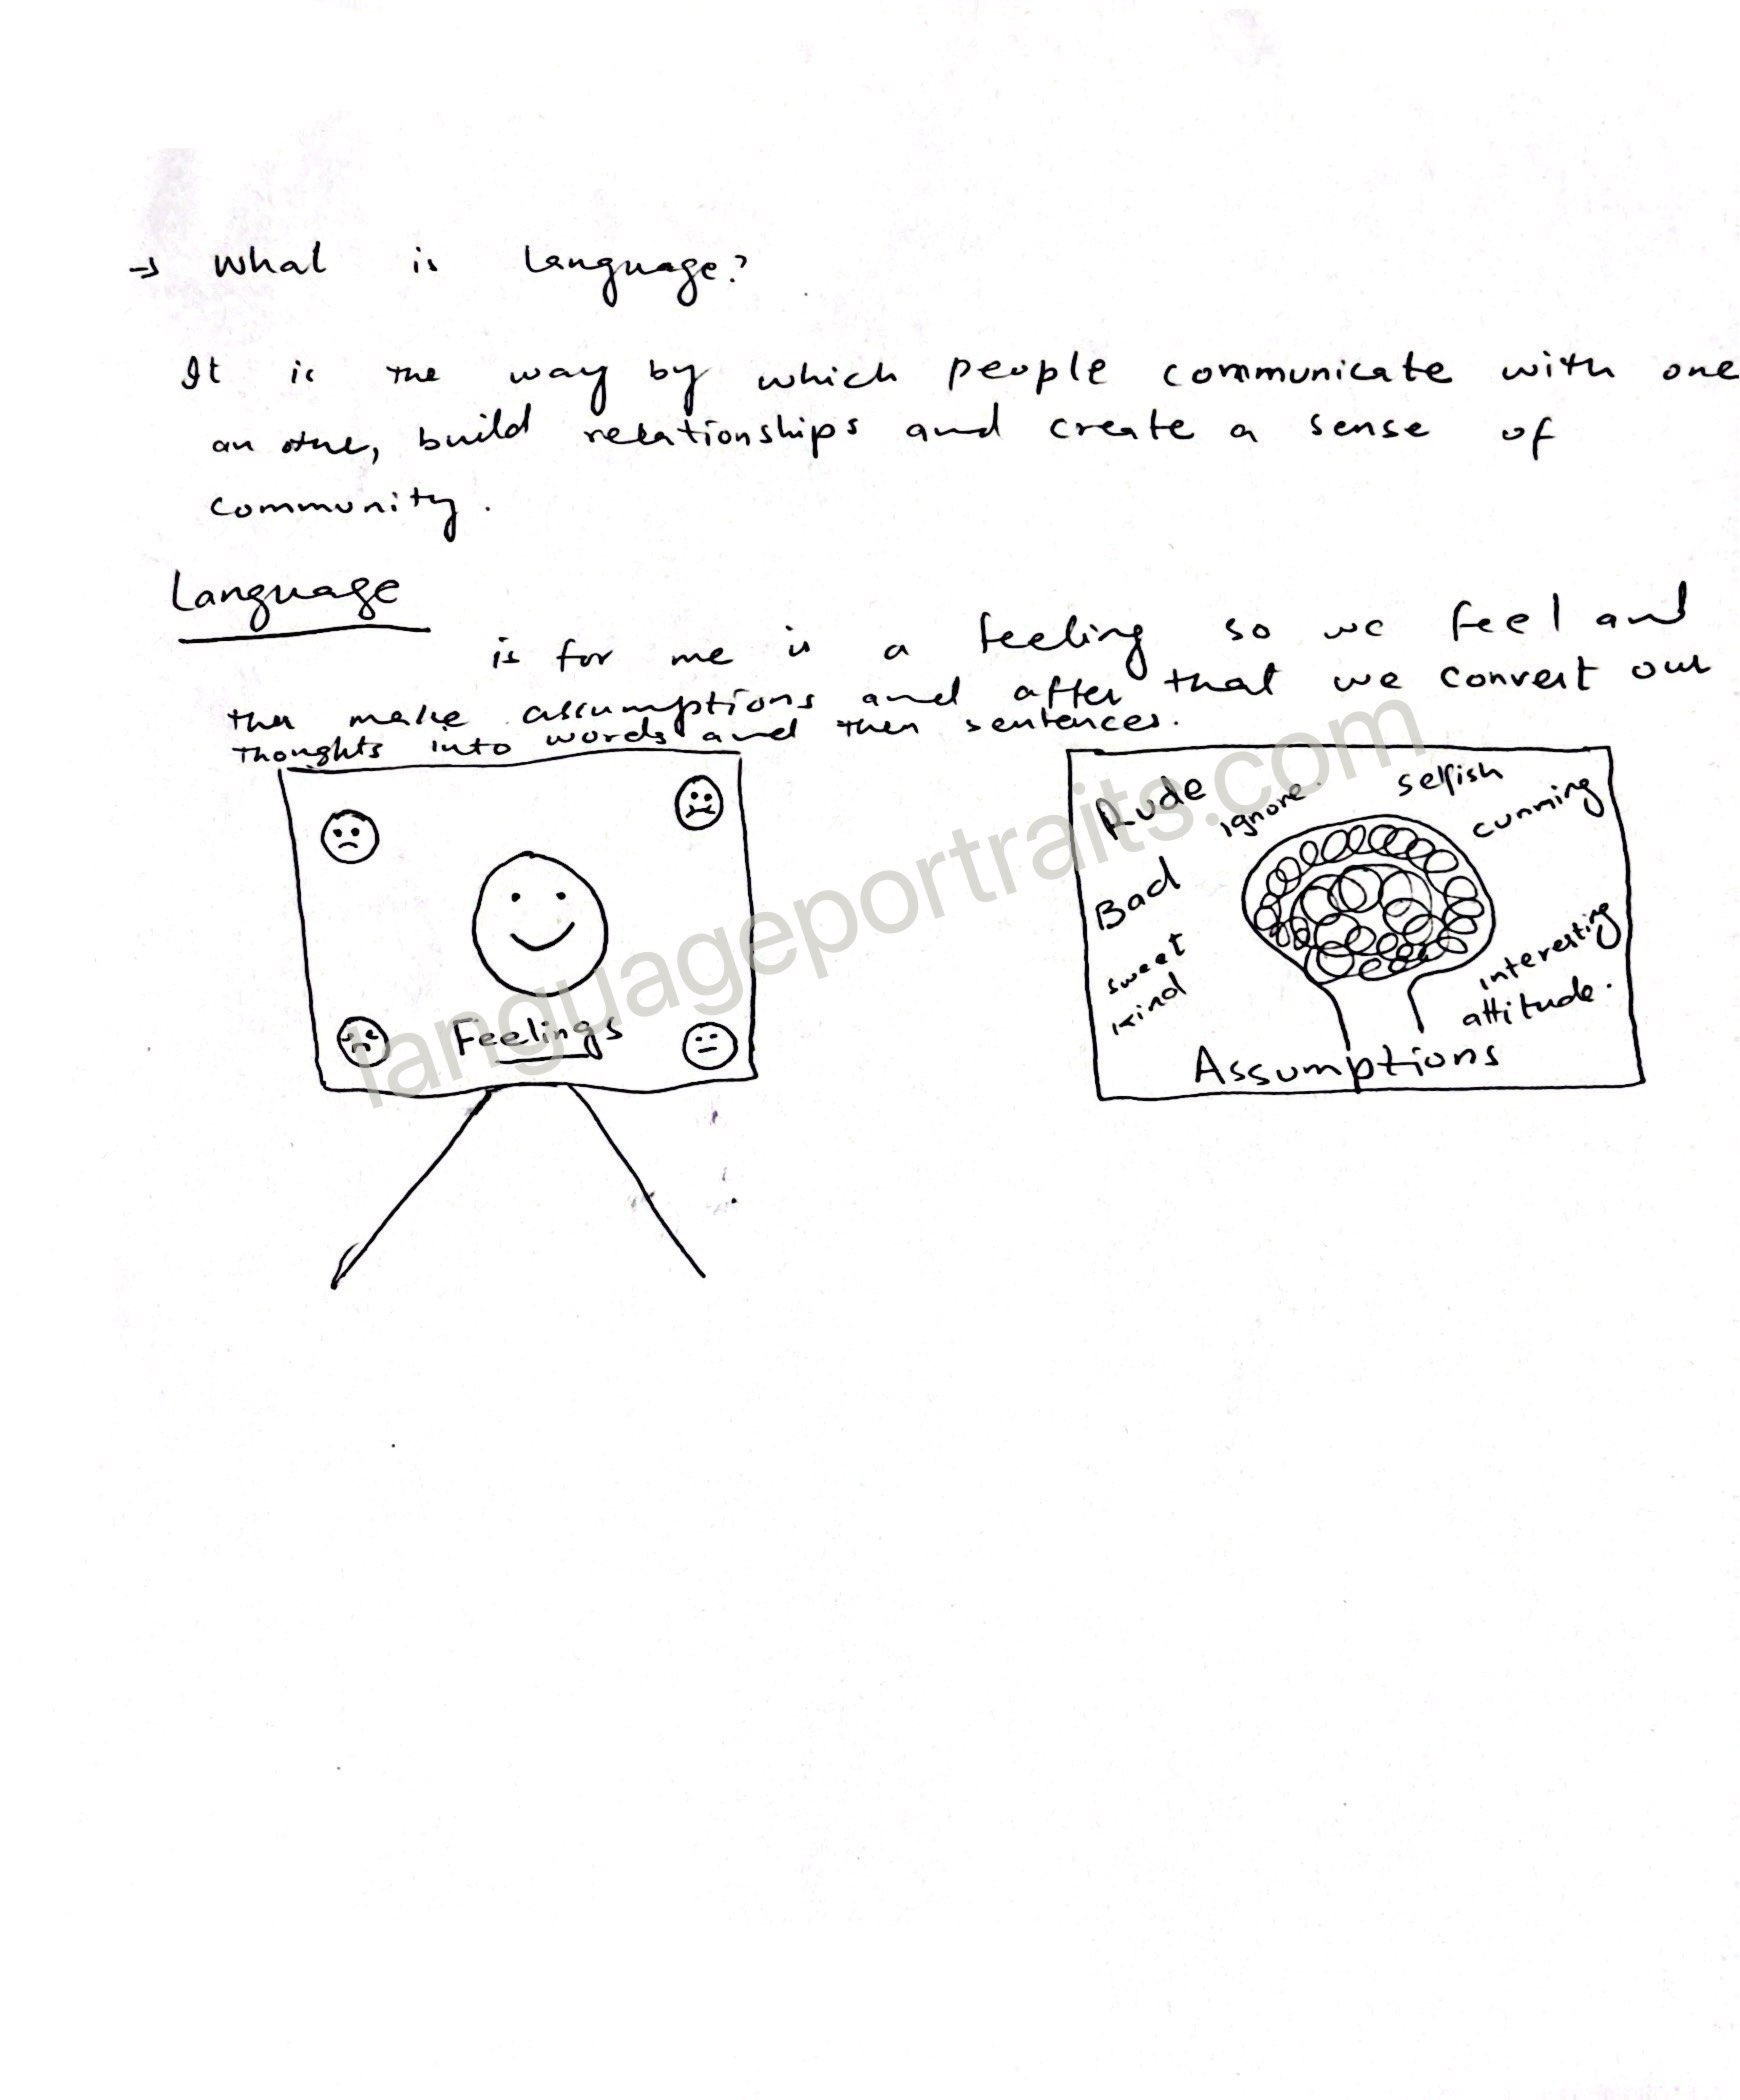 → What is language?
It is the way by which people communicate with one
an othe, build relationships and create a sense of
community.
Language
is for me is a feeling so we feel and
then make assumptions and after that we convert our
thoughts into words and then sentences.
Feelings
Rude
ignore.
selfish
cunning
Bad
sweet
kind
interesting
attitude.
Assumptions
languageportraits.com